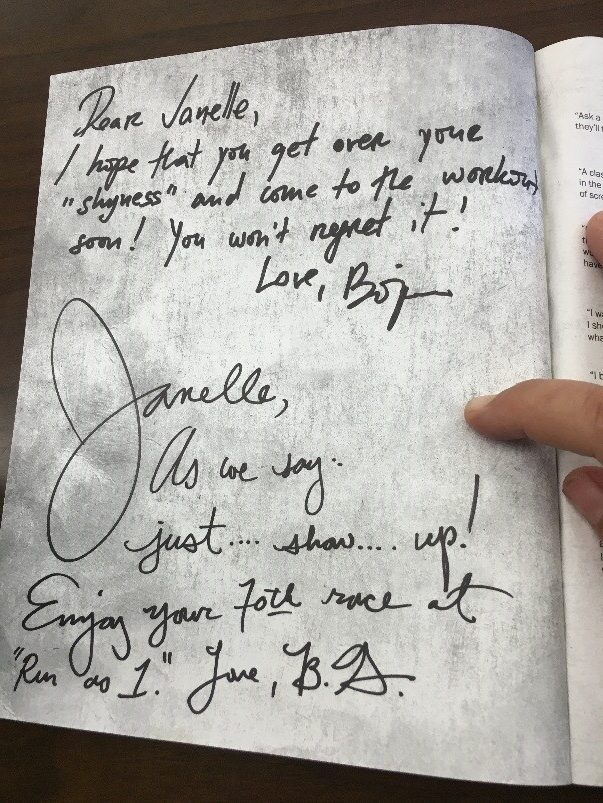 Dear Janelle,
I hope that you get over your
"shyness" and come to the workout
soon! You won't regret it!
Love,
Janelle,
As we say:
just.... show.... up!
Enjoy your 70th race at
"Run as 1." Love, B.G.
"Ask a
they'll
"A clas
in the
of scre
have
"I wa
I sho
wha
"I b